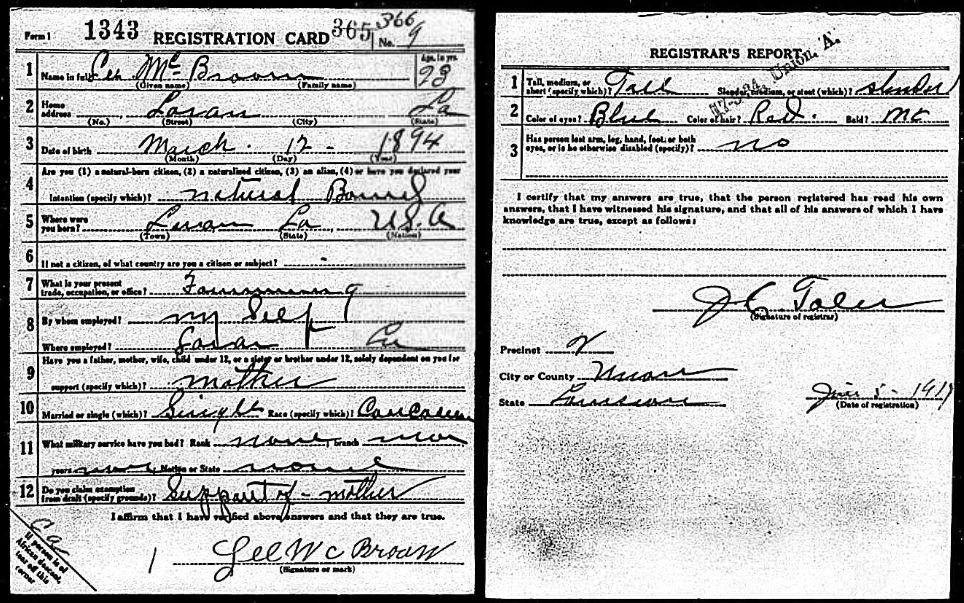 Form 1 1343 REGISTRATION CARD 365 366 No. 9
1 Name in full Mc Broom Age, in yrs. 23
(Given name) (Family name)
2 Home address La
(No.) (Street) (City) (State)
3 Date of birth March 12 - 1894
(Month) (Day) (Year)
4 Are you (1) a natural-born citizen, (2) a naturalized citizen, (3) an alien, (4) or have you declared your
intention (specify which)? natural
5 Where were you born? La U.S.A
(Town) (State) (Nation)
6 If not a citizen, of what country are you a citizen or subject? -
7 What is your present trade, occupation, or office? Farmming
8 By whom employed? my Self
Where employed? La
9 Have you a father, mother, wife, child under 12, or a sister or brother under 12, solely dependent on you for
support (specify which)? mother
10 Married or single (which)? Race (specify which)?
11 What military service have you had? Rank none branch
years Nation or State none
12 Do you claim exemption from draft (specify grounds)? Support of - mother
I affirm that I have verified above answers and that they are true.
If person is of African descent, tear off this corner
(Signature or mark)
REGISTRAR'S REPORT
17-3-34. Union. A.
1 Tall, medium, or short (specify which)? Tall Slender, medium, or stout (which)? slender
2 Color of eyes? Blue Color of hair? Red. Bald?
3 Has person lost arm, leg, hand, foot, or both eyes, or is he otherwise disabled (specify)? no
I certify that my answers are true, that the person registered has read his own
answers, that I have witnessed his signature, and that all of his answers of which I have
knowledge are true, except as follows:
(Signature of registrar)
Precinct
City or County Union
State Louisiana June 5 - 1917
(Date of registration)